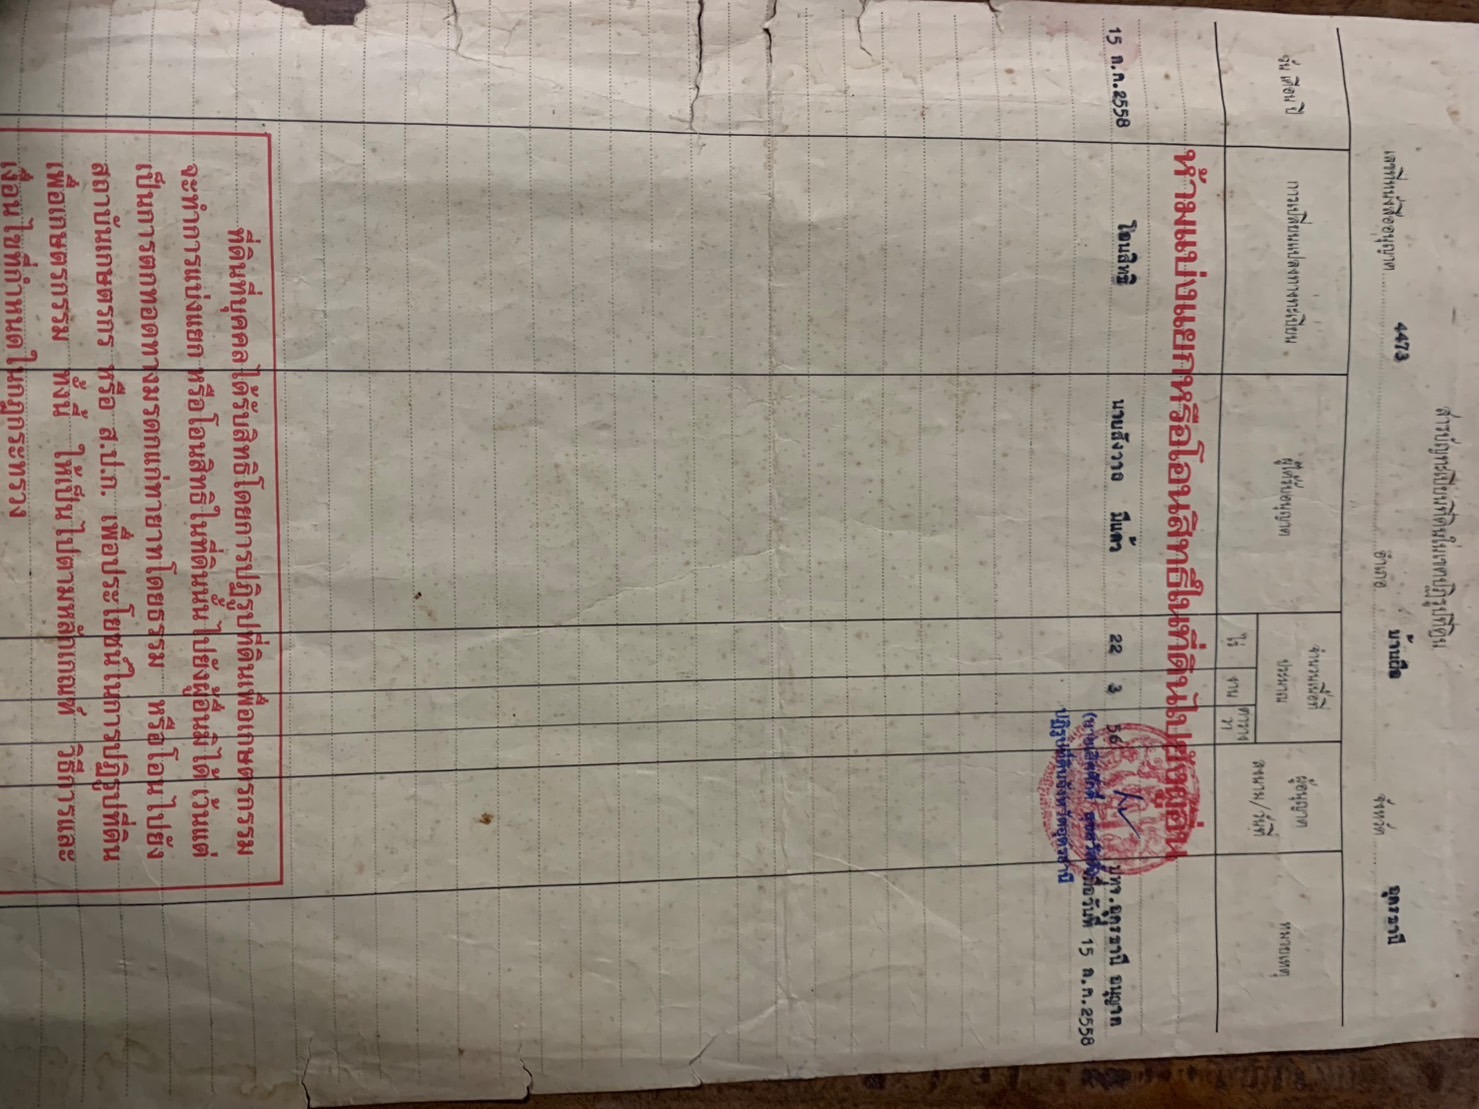 สารบัญทะเบียนที่ดินในเขตปฏิรูปที่ดิน
เลขที่หนังสืออนุญาต 4473 อำเภอ บ้านผือ จังหวัด อุดรธานี
วัน เดือน ปี การเปลี่ยนแปลงทางทะเบียน ผู้ได้รับอนุญาต จำนวนเนื้อที่ประมาณ ผู้อนุญาต ลงนาม/วันที่ หมายเหตุ
ไร่ งาน ตารางวา
ห้ามแบ่งแยกหรือโอนสิทธิในที่ดินไปยังผู้อื่น
15 ก.ค.2558 โอนสิทธิ นายสังวาล มีแก้ว 22 3 56 ปทจ.อุดรธานี อนุญาต
เมื่อวันที่ 15 ก.ค.2558
ปฏิรูปที่ดินจังหวัดอุดรธานี
ที่ดินที่บุคคลได้รับสิทธิโดยการปฏิรูปที่ดินเพื่อเกษตรกรรม
จะทำการแบ่งแยก หรือโอนสิทธิในที่ดินนั้นไปยังผู้อื่นมิได้ เว้นแต่
เป็นการตกทอดทางมรดกแก่ทายาทโดยธรรม หรือโอนไปยัง
สถาบันเกษตรกร หรือ ส.ป.ก. เพื่อประโยชน์ในการปฏิรูปที่ดิน
เพื่อเกษตรกรรม ทั้งนี้ ให้เป็นไปตามหลักเกณฑ์ วิธีการและ
เงื่อนไขที่กำหนดในกฎกระทรวง